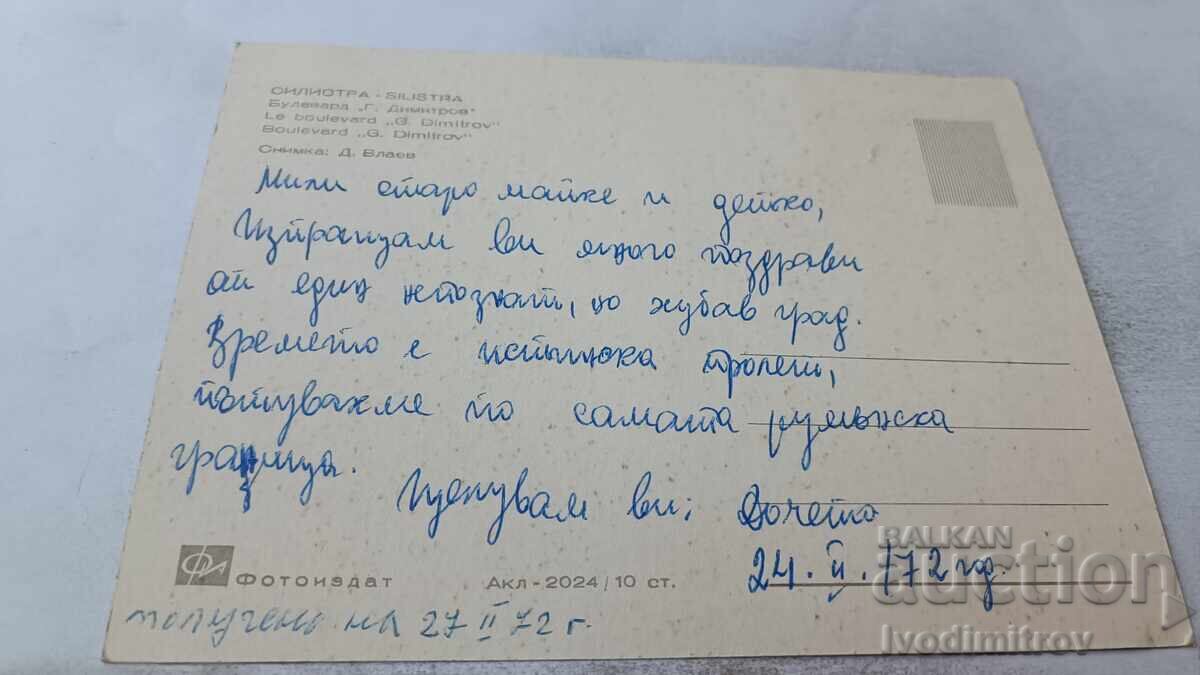 СИЛИСТРА - SILISTRA
Булевард „Г. Димитров"
Le boulevard „G. Dimitrov"
Boulevard „G. Dimitrov"
Снимка: Д. Влаев
Мили старо майке и дейко,
Изпращам ви много поздрави
от един непознат, но хубав град.
Времето е истинска пролет,
пътувахме по самата румънска
граница.
Целувам ви: Дочето
24. II. 1972 год.
ФОТОИЗДАТ
Акл-2024/10 ст.
получено на 27 II 72 г.
BALKAN
auction
Ivodimitrov